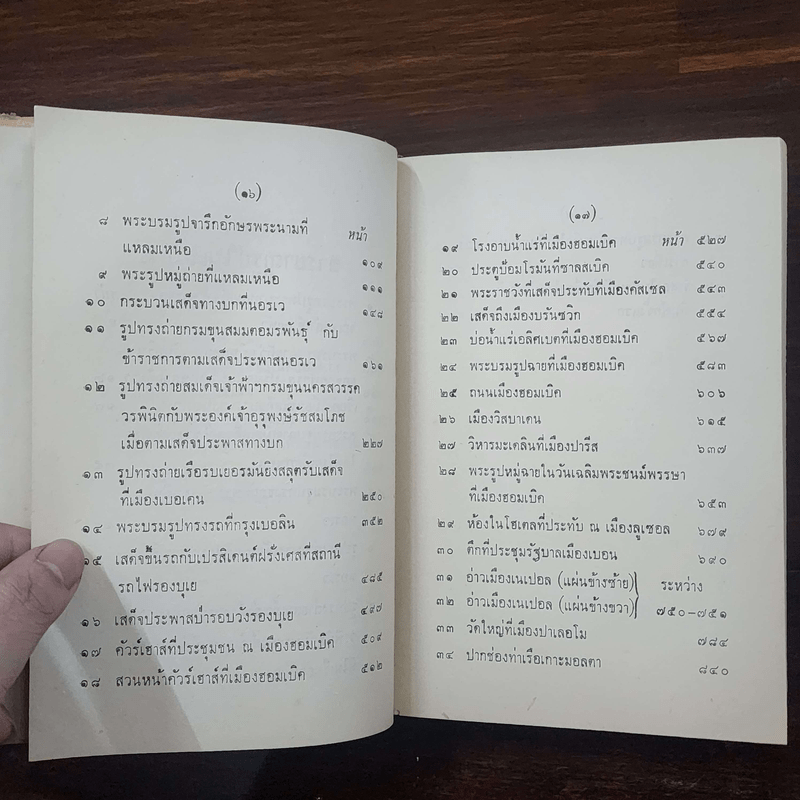 (๑๖)
๘ พระบรมรูปจารึกอักษรพระนามที่ หน้า
แหลมเหนือ ๑๐๙
๙ พระรูปหมู่ถ่ายที่แหลมเหนือ ๑๑๑
๑๐ กระบวนเสด็จทางบกที่นอรเว ๑๔๘
๑๑ รูปทรงถ่ายกรมขุนสมมตอมรพันธุ์ กับ
ข้าราชการตามเสด็จประพาสนอรเว ๑๖๑
๑๒ รูปทรงถ่ายสมเด็จเจ้าฟ้าฯกรมขุนนครสวรรค
วรพินิตกับพระองค์เจ้าอุรุพงษ์รัชสมโภช
เมื่อตามเสด็จประพาสทางบก ๒๒๗
๑๓ รูปทรงถ่ายเรือรบเยอรมันยิงสลุตรับเสด็จ
ที่เมืองเบอเคน ๒๕๐
๑๔ พระบรมรูปทรงรถที่กรุงเบอลิน ๓๕๒
๑๕ เสด็จขึ้นรถกับเปรสิเดนต์ฝรั่งเศสที่สถานี
รถไฟรองบุเย ๔๘๕
๑๖ เสด็จประพาสป่ารอบวังรองบุเย ๔๙๗
๑๗ คัวร์เฮาส์ที่ประชุมชน ณ เมืองฮอมเบิค ๕๐๙
๑๘ สวนหน้าคัวร์เฮาส์ที่เมืองฮอมเบิค ๕๑๒
(๑๗)
๑๙ โรงอาบน้ำแร่ที่เมืองฮอมเบิค หน้า ๕๒๗
๒๐ ประตูป้อมโรมันที่ซาลสเบิค ๕๔๐
๒๑ พระราชวังที่เสด็จประทับที่เมืองคัสเซล ๕๔๓
๒๒ เสด็จถึงเมืองบรันซวิก ๕๕๔
๒๓ บ่อน้ำแร่เอลิศเบตที่เมืองฮอมเบิค ๕๖๗
๒๔ พระบรมรูปฉายที่เมืองฮอมเบิค ๕๘๓
๒๕ ถนนเมืองฮอมเบิค ๖๐๖
๒๖ เมืองวิสบาเดน ๖๑๕
๒๗ วิหารมะเดลินที่เมืองปารีส ๖๓๗
๒๘ พระรูปหมู่ฉายในวันเฉลิมพระชนม์พรรษา
ที่เมืองฮอมเบิค ๖๕๓
๒๙ ห้องในโฮเตลที่ประทับ ณ เมืองลูเซอล ๖๗๙
๓๐ ตึกที่ประชุมรัฐบาลเมืองเบอน ๖๙๐
๓๑ อ่าวเมืองเนเปอล (แผ่นข้างซ้าย) ระหว่าง
๓๒ อ่าวเมืองเนเปอล (แผ่นข้างขวา) ๗๕๐–๗๕๑
๓๓ วัดใหญ่ที่เมืองปาเลอโม ๗๘๔
๓๔ ปากช่องท่าเรือเกาะมอลตา ๘๔๐